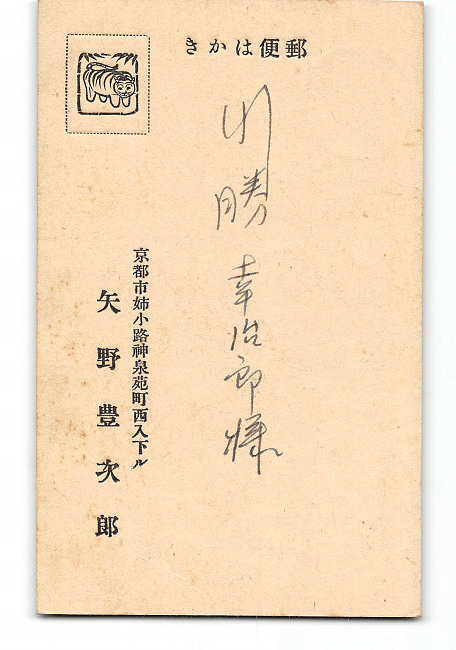 郵便はかき
川勝幸治郎様
京都市姉小路神泉苑町西入下ル
矢野豊次郎